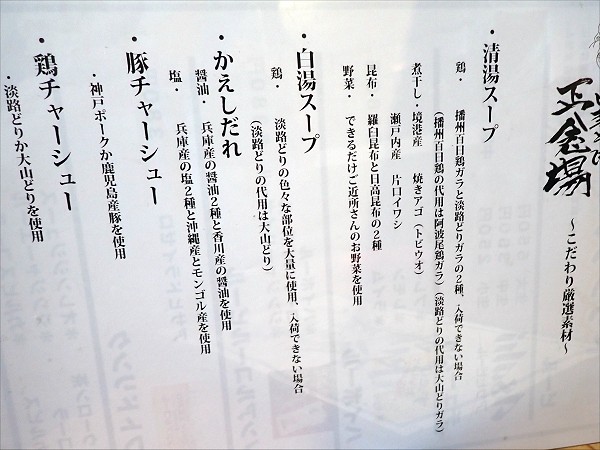 〜こだわり厳選素材〜
・清湯スープ
鶏・ 播州百日鶏ガラと淡路どりガラの2種、入荷できない場合
(播州百日鶏の代用は阿波尾鶏ガラ)(淡路どりの代用は大山どりガラ)
煮干し・境港産 焼きアゴ(トビウオ)
瀬戸内産 片口イワシ
昆布・ 羅臼昆布と日高昆布の2種
野菜・ できるだけご近所さんのお野菜を使用
・白湯スープ
鶏・ 淡路どりの色々な部位を大量に使用、入荷できない場合
(淡路どりの代用は大山どり)
・かえしだれ
醤油・ 兵庫産の醤油2種と香川産の醤油を使用
塩・ 兵庫産の塩2種と沖縄産とモンゴル産を使用
・豚チャーシュー
・神戸ポークか鹿児島産豚を使用
・鶏チャーシュー
・淡路どりか大山どりを使用